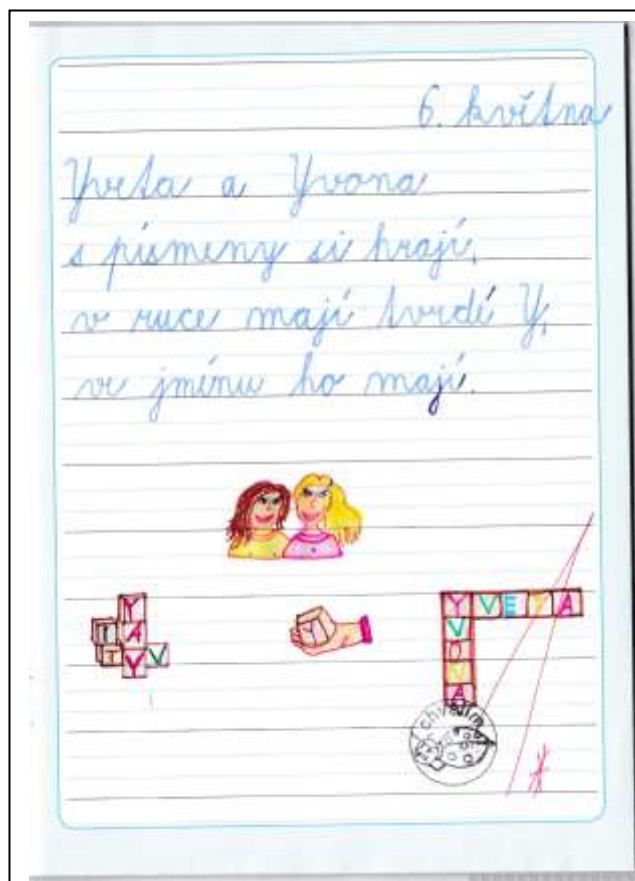 6. května
Yveta a Yvona
s písmeny si hrají,
v ruce mají tvrdé Y,
ve jménu ho mají.
Y
I A
T Y V
Y
YVETA
YVONA
chválím